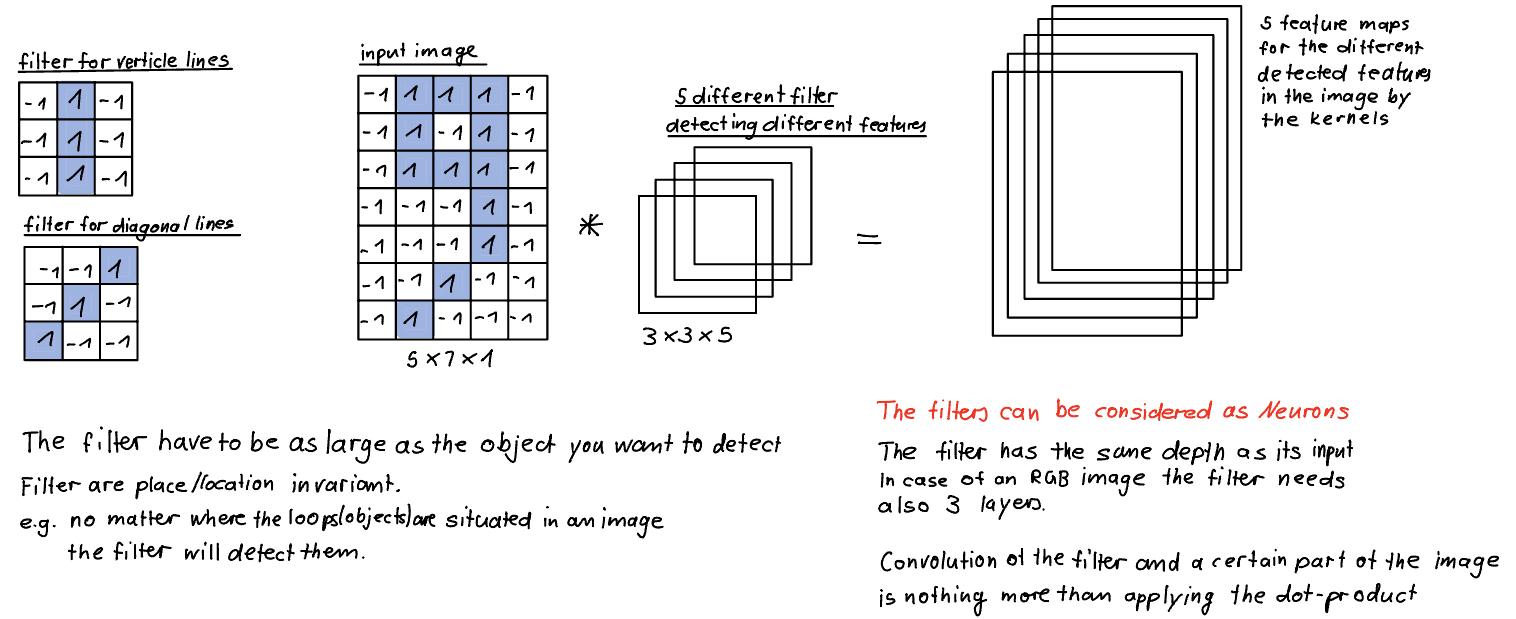 filter for verticle lines
-1 1 -1
-1 1 -1
-1 1 -1
filter for diagonal lines
-1 -1 1
-1 1 -1
1 -1 -1
input image
-1 1 1 1 -1
-1 1 -1 1 -1
-1 1 1 1 -1
-1 -1 -1 1 -1
-1 -1 -1 1 -1
-1 -1 1 -1 -1
-1 1 -1 -1 -1
5 x 7 x 1
*
5 different filter
detecting different features
3 x 3 x 5
=
5 feature maps
for the different
detected features
in the image by
the kernels
The filter have to be as large as the object you want to detect
Filter are place/location invariant.
e.g. no matter where the loops(objects) are situated in an image
the filter will detect them.
The filters can be considered as Neurons
The filter has the same depth as its input
In case of an RGB image the filter needs
also 3 layers.
Convolution of the filter and a certain part of the image
is nothing more than applying the dot-product